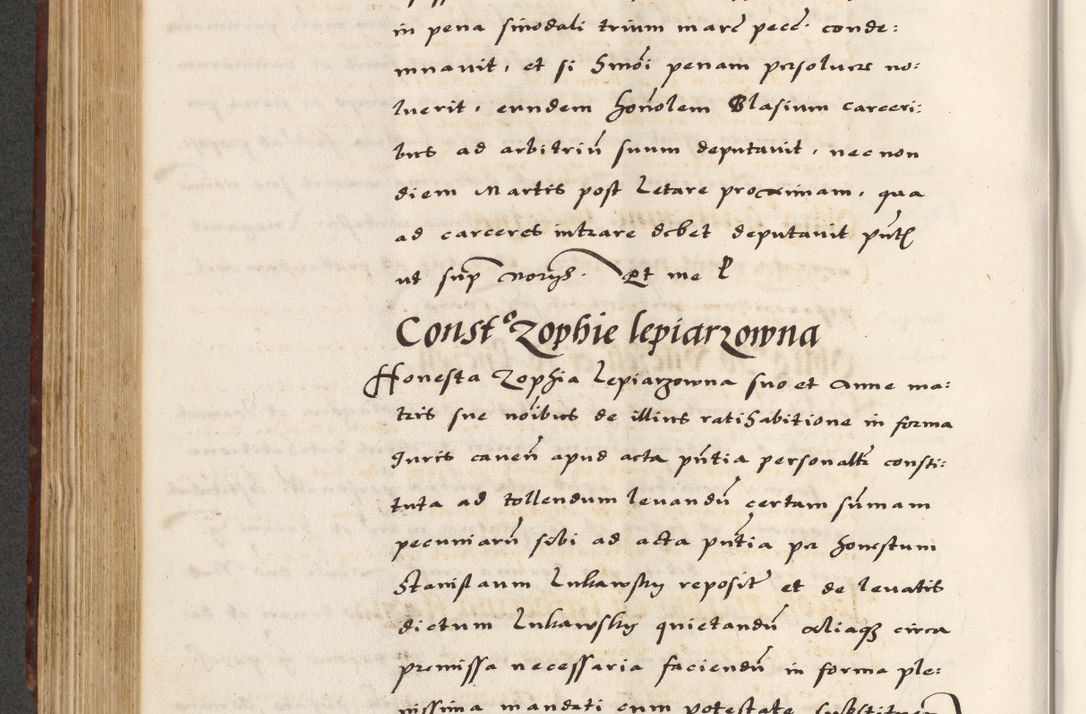 in pena sinodali trium marc̃ pecc̃. conde:
mnavit, et si hmõi penam persolvere no:
luerit, eundem honolem Blasium carceri:
bus ad arbitriũ suum deputavit, nec non
diem Martis post Letare proximam, qua
ad carceres intrare debet deputavit pñt
ut sup̃ Et me
Constᵒ Zophie lepiarzowna
Honesta Zophia Lepiarzowna suo et Anne ma:
tris sue nõibus de illius ratihabitione in forma
Juris caveñ apud acta pñtia personalr̃ consti:
tuta ad tollendum levandũ certam sũmam
pecuniarũ sibi ad acta pñtia per honestum
Stanislaum Lukawsky reposit̃ et de levatis
dictum Lukawsky quietandũ Aliaqꝫ circa
premissa necessaria faciendũ in forma ple:
nissima mandati cum potestate